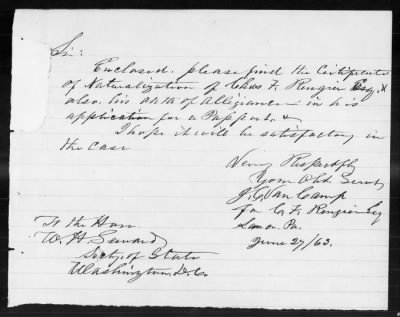 Sir:
Enclosed. please find the Certificate
of Naturalization of Chas F. Rengier Esq. &
also. his oath of Allegiance in his
application for a Passport. &
I hope it will be satisfactory in
the case
Very Respectfly
Your Obt. Servt
J. G. Van Camp
for C. F. Rengier Esq
Pa.
June 27/63.
To the Hon.
W. H. Seward
Secty. of State
Washington, D.C.